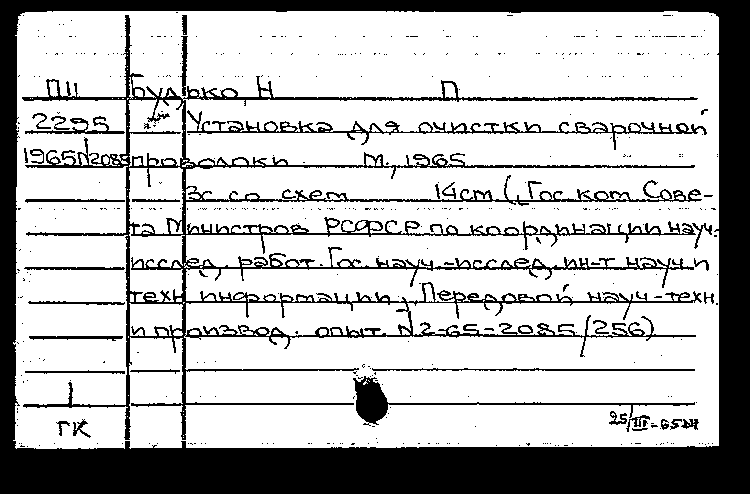 ПШ Будько, Н П
2295 Установка для очистки сварочной
1965/2085 проволоки М., 1965
3с со схем 14см (Гос. ком Сове-
та Министров РСФСР по координации науч.-
исслед. работ. Гос. науч.-исслед. ин-т науч. и
техн информации). Передовой науч-техн.
и производ. опыт. №2-65-2085/256)
ГК
25/III-65